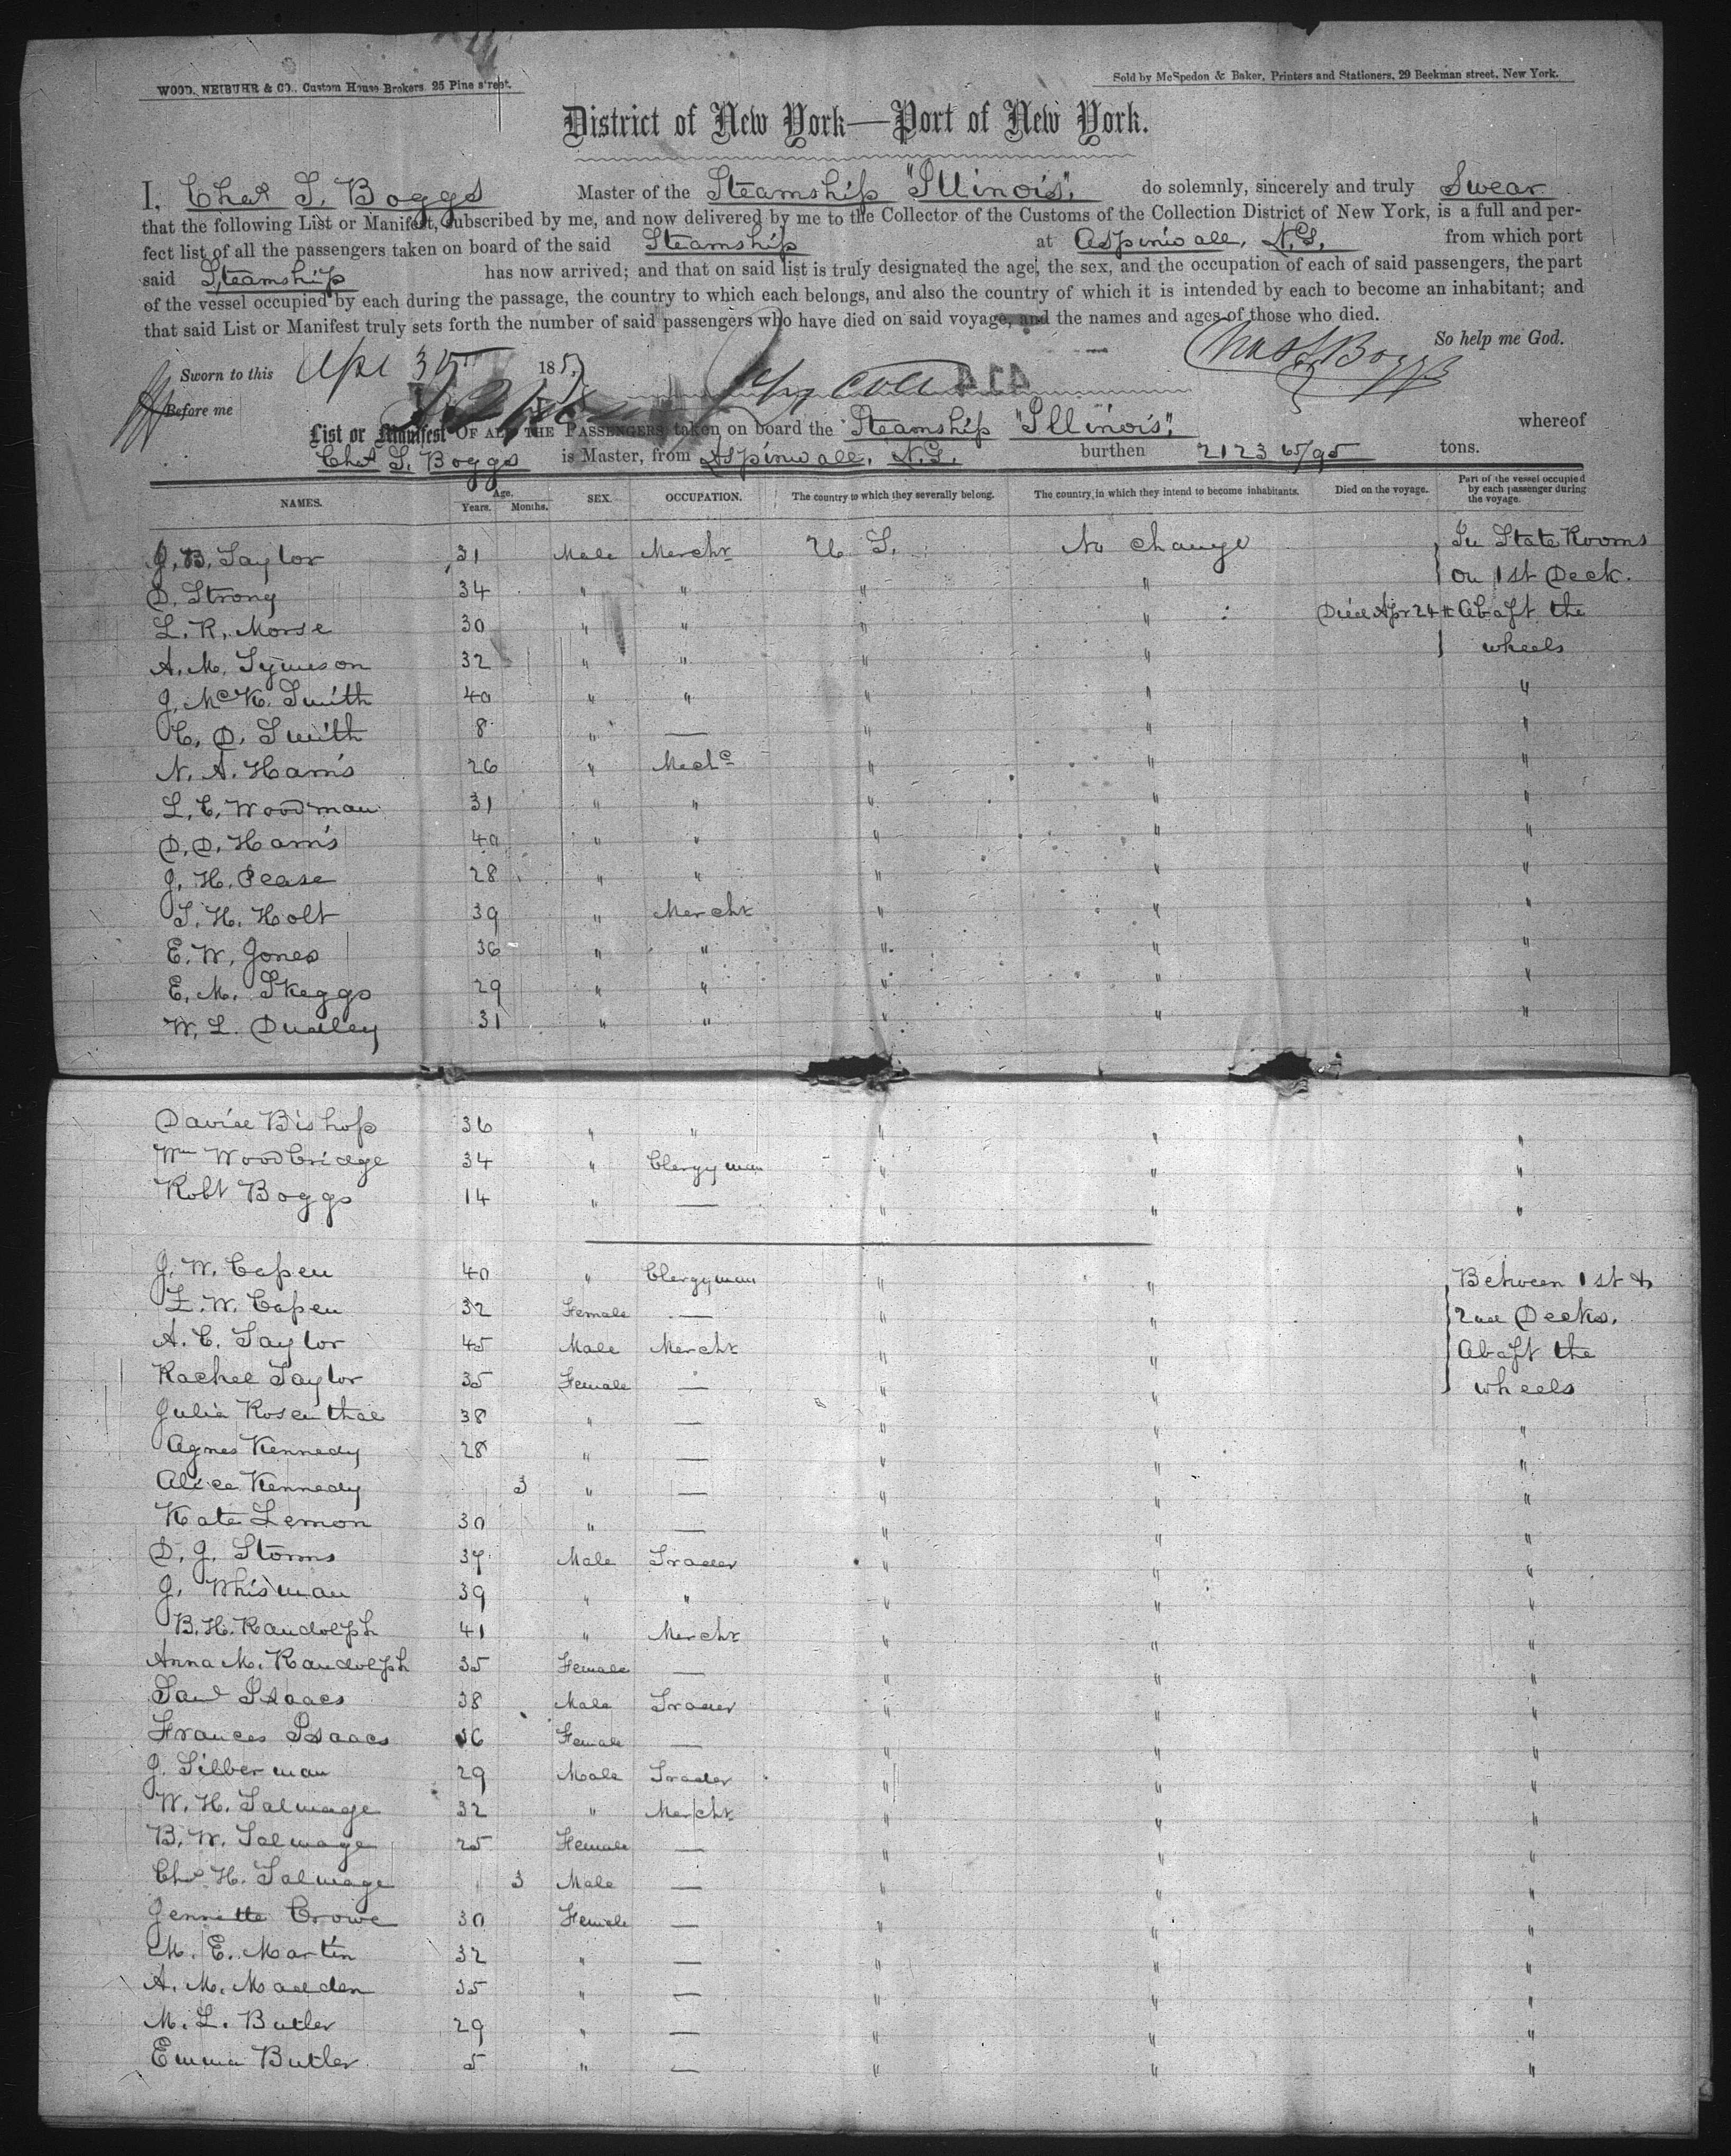 WOOD, NEIBUHR & CO., Custom House Brokers, 25 Pine street.
Sold by McSpedon & Baker, Printers and Stationers, 29 Beekman street, New York.
District of New York—Port of New York.
I, Chas S. Boggs Master of the Steamship "Illinois", do solemnly, sincerely and truly Swear
that the following List or Manifest, subscribed by me, and now delivered by me to the Collector of the Customs of the Collection District of New York, is a full and per-
fect list of all the passengers taken on board of the said Steamship at Aspinwall, N.G. from which port
said Steamship has now arrived; and that on said list is truly designated the age, the sex, and the occupation of each of said passengers, the part
of the vessel occupied by each during the passage, the country to which each belongs, and also the country of which it is intended by each to become an inhabitant; and
that said List or Manifest truly sets forth the number of said passengers who have died on said voyage, and the names and ages of those who died.
So help me God.
Sworn to this Apl 185 Chas S Boggs
Before me 414
List or Manifest OF ALL THE PASSENGERS taken on board the Steamship "Illinois", whereof
Chas S. Boggs is Master, from Aspinwall, N.G. burthen 2123 65/95 tons.
NAMES. Age. Years. Months. SEX. OCCUPATION. The country to which they severally belong. The country in which they intend to become inhabitants. Died on the voyage. Part of the vessel occupied by each passenger during the voyage.
J. B. Taylor 31 Male Mercht U. S. No change In State Rooms
D. Strong 34 " " " " on 1st Deck.
L. R. Morse 30 " " " " Died Apr 24th Abaft the
A. M. Symeson 32 " " " " wheels
J. McK. Smith 40 " " " " "
C. D. Smith 8 " — " " "
N. A. Harris 26 " Mechc " " "
L. C. Woodman 31 " " " " "
D. D. Harris 40 " " " " "
J. H. Pease 28 " " " " "
S. H. Holt 39 " Mercht " " "
E. W. Jones 36 " " " " "
E. M. Skeggs 29 " " " " "
W. L. Dudley 31 " " " " "
David Bishop 36 " " " " "
Wm Woodbridge 34 " Clergyman " " "
Robt Boggs 14 " — " " "
J. W. Capen 40 " Clergyman " " Between 1st &
L. W. Capen 32 Female — " " 2nd Decks.
A. C. Taylor 45 Male Mercht " " Abaft the
Rachel Taylor 35 Female — " " wheels
Julia Rosenthal 38 " — " " "
Agnes Kennedy 28 " — " " "
Alice Kennedy 3 " — " " "
Kate Lemon 30 " — " " "
D. J. Storms 37 Male Trader " " "
J. Whisman 39 " " " " "
B. H. Randolph 41 " Mercht " " "
Anna M. Randolph 35 Female — " " "
Saml Isaacs 38 Male Trader " " "
Frances Isaacs 36 Female — " " "
J. Silberman 29 Male Trader " " "
W. H. Talmage 32 " Mercht " " "
B. W. Talmage 25 Female — " " "
Chs H. Talmage 3 Male — " " "
Jennette Crowe 30 Female — " " "
M. E. Martin 32 " — " " "
A. M. Madden 35 " — " " "
M. L. Butler 29 " — " " "
Emma Butler 5 " — " " "